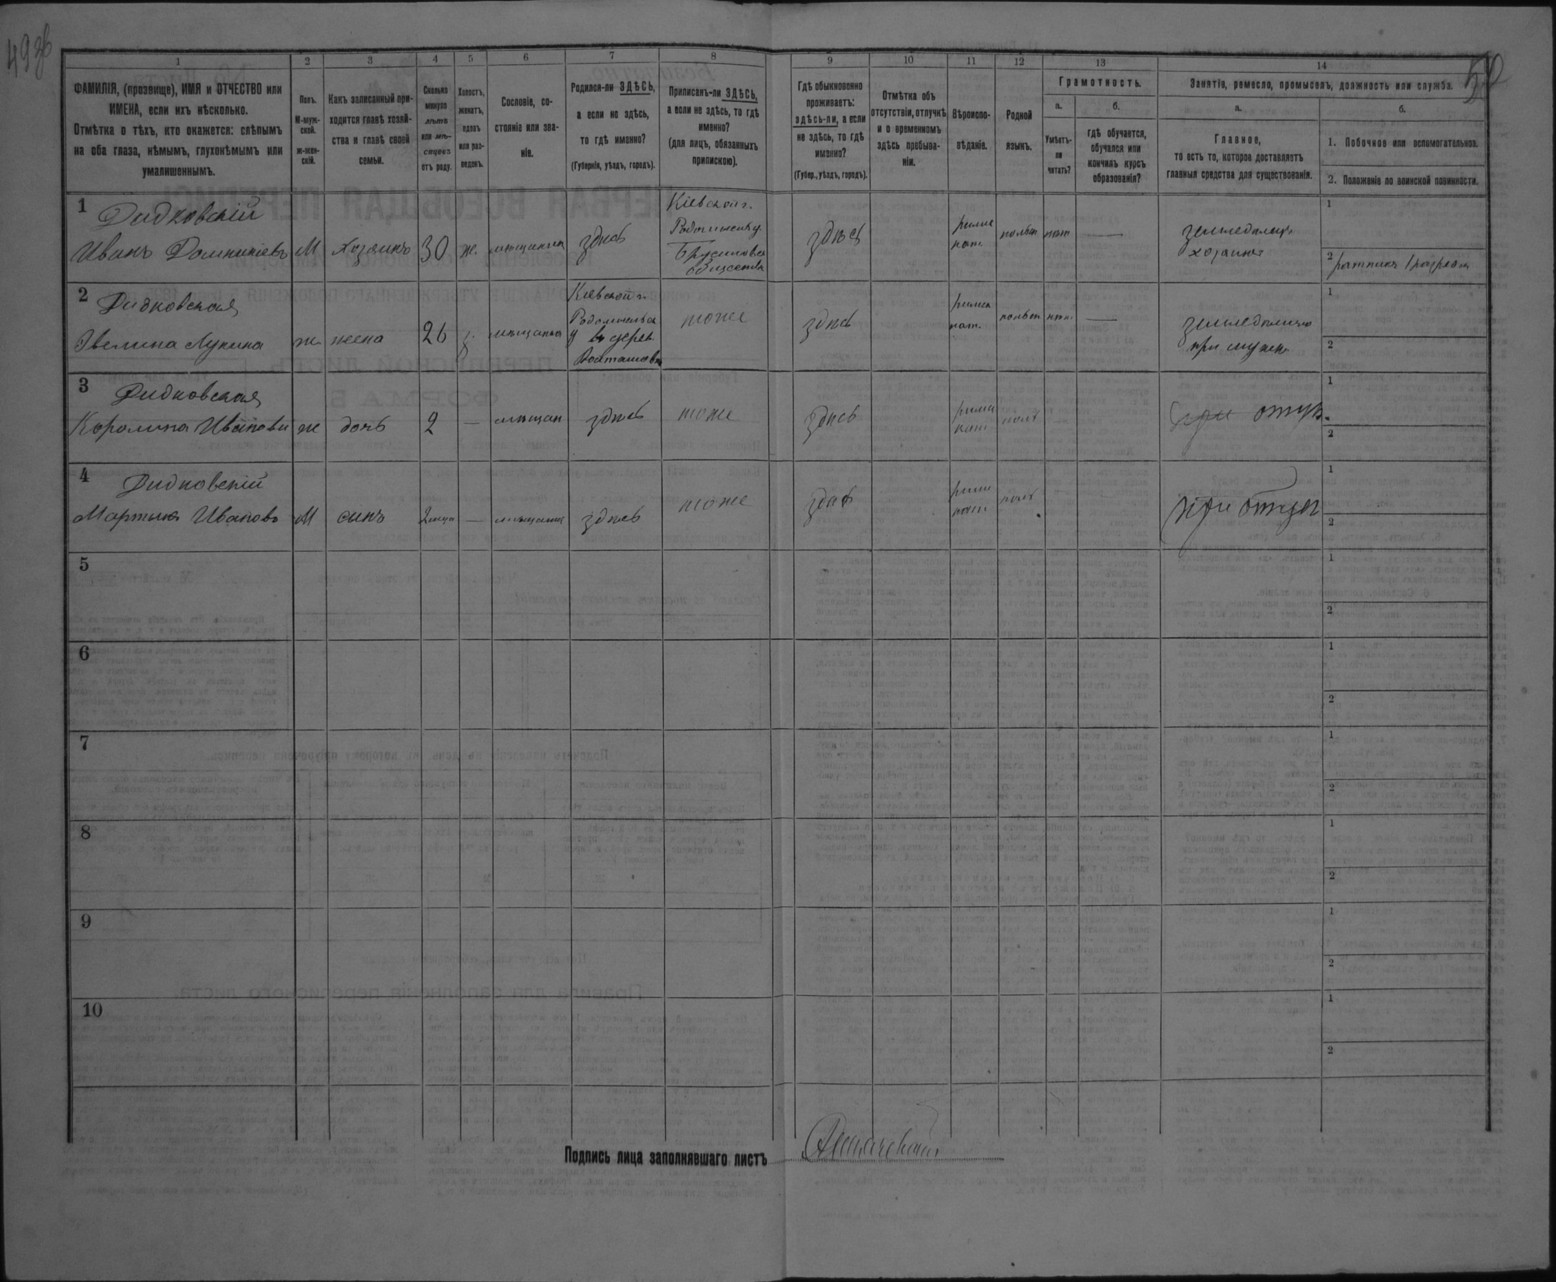 49об
50
1
2
3
4
5
6
7
8
9
10
11
12
13
14
ФАМИЛІЯ, (прозвище), ИМЯ и ОТЧЕСТВО или
ИМЕНА, если ихъ нѣсколько.
Отмѣтка о тѣхъ, кто окажется: слѣпымъ
на оба глаза, нѣмымъ, глухонѣмымъ или
умалишеннымъ.
Полъ.
М-муж-
ской.
ж-жен-
скій.
Какъ записанный при-
ходится главѣ хозяй-
ства и главѣ своей
семьи.
Сколько
минуло
лѣтъ
или мѣ-
сяцевъ
отъ роду.
Холостъ,
женатъ,
вдовъ
или раз-
веденъ.
Сословіе, со-
стояніе или зва-
ніе.
Родился-ли ЗДѢСЬ,
а если не здѣсь,
то гдѣ именно?
(Губернія, уѣздъ, городъ).
Приписанъ-ли ЗДѢСЬ,
а если не здѣсь, то гдѣ
именно?
(для лицъ, обязанныхъ
припискою).
Гдѣ обыкновенно
проживаетъ:
здѣсь-ли, а если
не здѣсь, то гдѣ
именно?
(Губер., уѣздъ, городъ).
Отмѣтка объ
отсутствіи, отлучкѣ
и о временномъ
здѣсь пребыва-
ніи.
Вѣроиспо-
вѣданіе.
Родной
языкъ.
Грамотность.
а.
Умѣетъ-
ли
читать?
б.
гдѣ обучается,
обучался или
кончилъ курсъ
образованія?
Занятіе, ремесло, промыселъ, должность или служба.
а.
Главное,
то есть то, которое доставляетъ
главныя средства для существованія.
б.
1. Побочное или вспомогательное.
2. Положеніе по воинской повинности.
1
Дидковскій
Иванъ Доминиковъ
М
хозяинъ
30
ж.
мѣщанинъ
здѣсь
Кіевской г.
Брусиловск
общества
здѣсь
римск
кат.
польск
нѣт
—
земледѣлецъ
хозяинъ
1
2 ратникъ 1 разряда
2
Дидковская
Эвелина Лукина
ж
жена
26
мѣщанка
Кіевской г.
тоже
здѣсь
римск
кат.
польск
нѣт
—
земледѣліе
при мужѣ
1
2
3
Дидковская
Каролина Иванова
ж
дочь
2
—
мѣщан
здѣсь
тоже
здѣсь
римск
кат
польс
при отцѣ
1
2
4
Дидковскій
Мартинъ Ивановъ
М
сынъ
2 мѣся
—
мѣщанин
здѣсь
тоже
здѣсь
римск
кат
польс
при отцѣ
1
2
5
1
2
6
1
2
7
1
2
8
1
2
9
1
2
10
1
2
Подпись лица заполнявшаго листъ